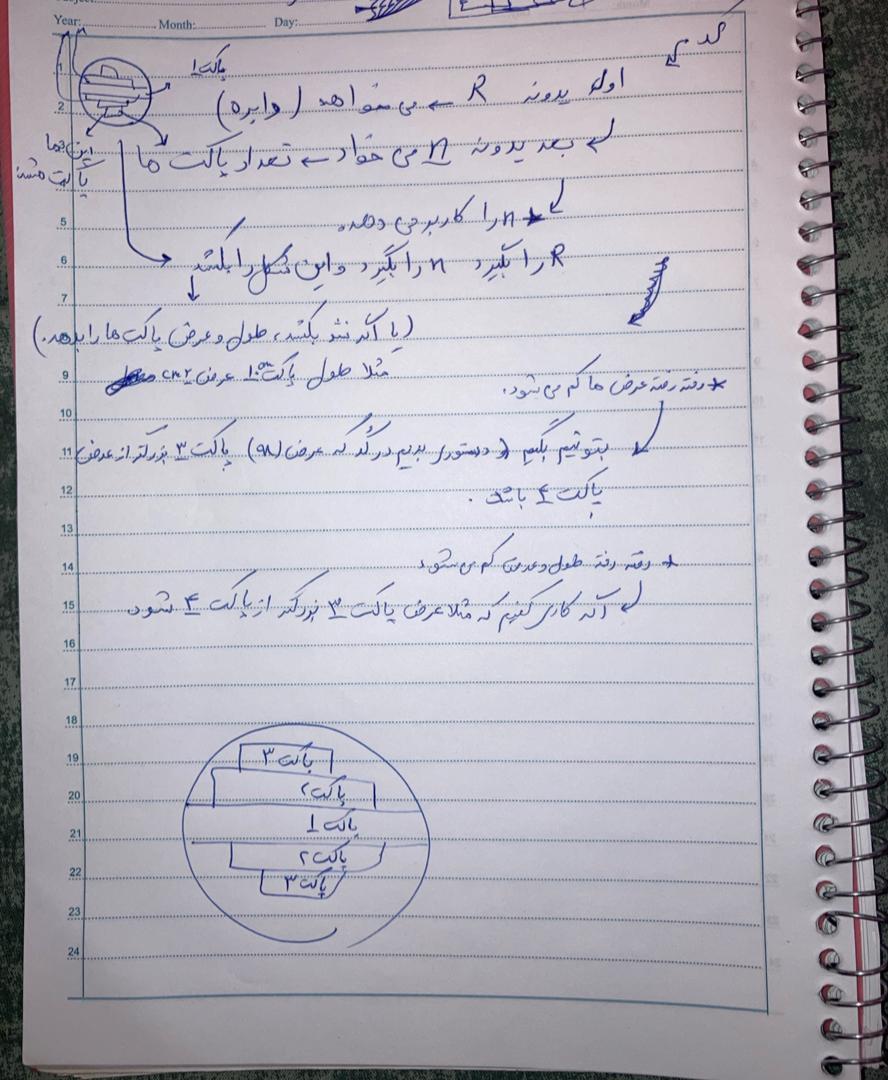 Year: Month: Day:
کد:
پاکت ۱
اول یدونه R ← می خواهد (دایره)
بعد یدونه n می خواد ← تعداد پاکت ها
این ها
پاکت هستند
n را کاربر می دهد.
R را بگیرد n را بگیرد و این شکل را بکشد
(یا اگر نشد بکشد، طول و عرض پاکت ها را بدهد.)
مثلا طول پاکت ۱ عرض ۲cm
* رفته رفته عرض ها کم می شود.
بتونیم بگیم و دستوری بدیم در کد که عرض پاکت ۳ بزرگتر از عرض
پاکت ۴ باشد.
* رفته رفته طول و عرض کم می شود
اگه کاری کنیم که مثلا عرض پاکت ۳ بزرگتر از پاکت ۴ شود
پاکت ۳
پاکت ۲
پاکت ۱
پاکت ۲
پاکت ۳
1
2
3
5
6
7
8
9
10
11
12
13
14
15
16
17
18
19
20
21
22
23
24